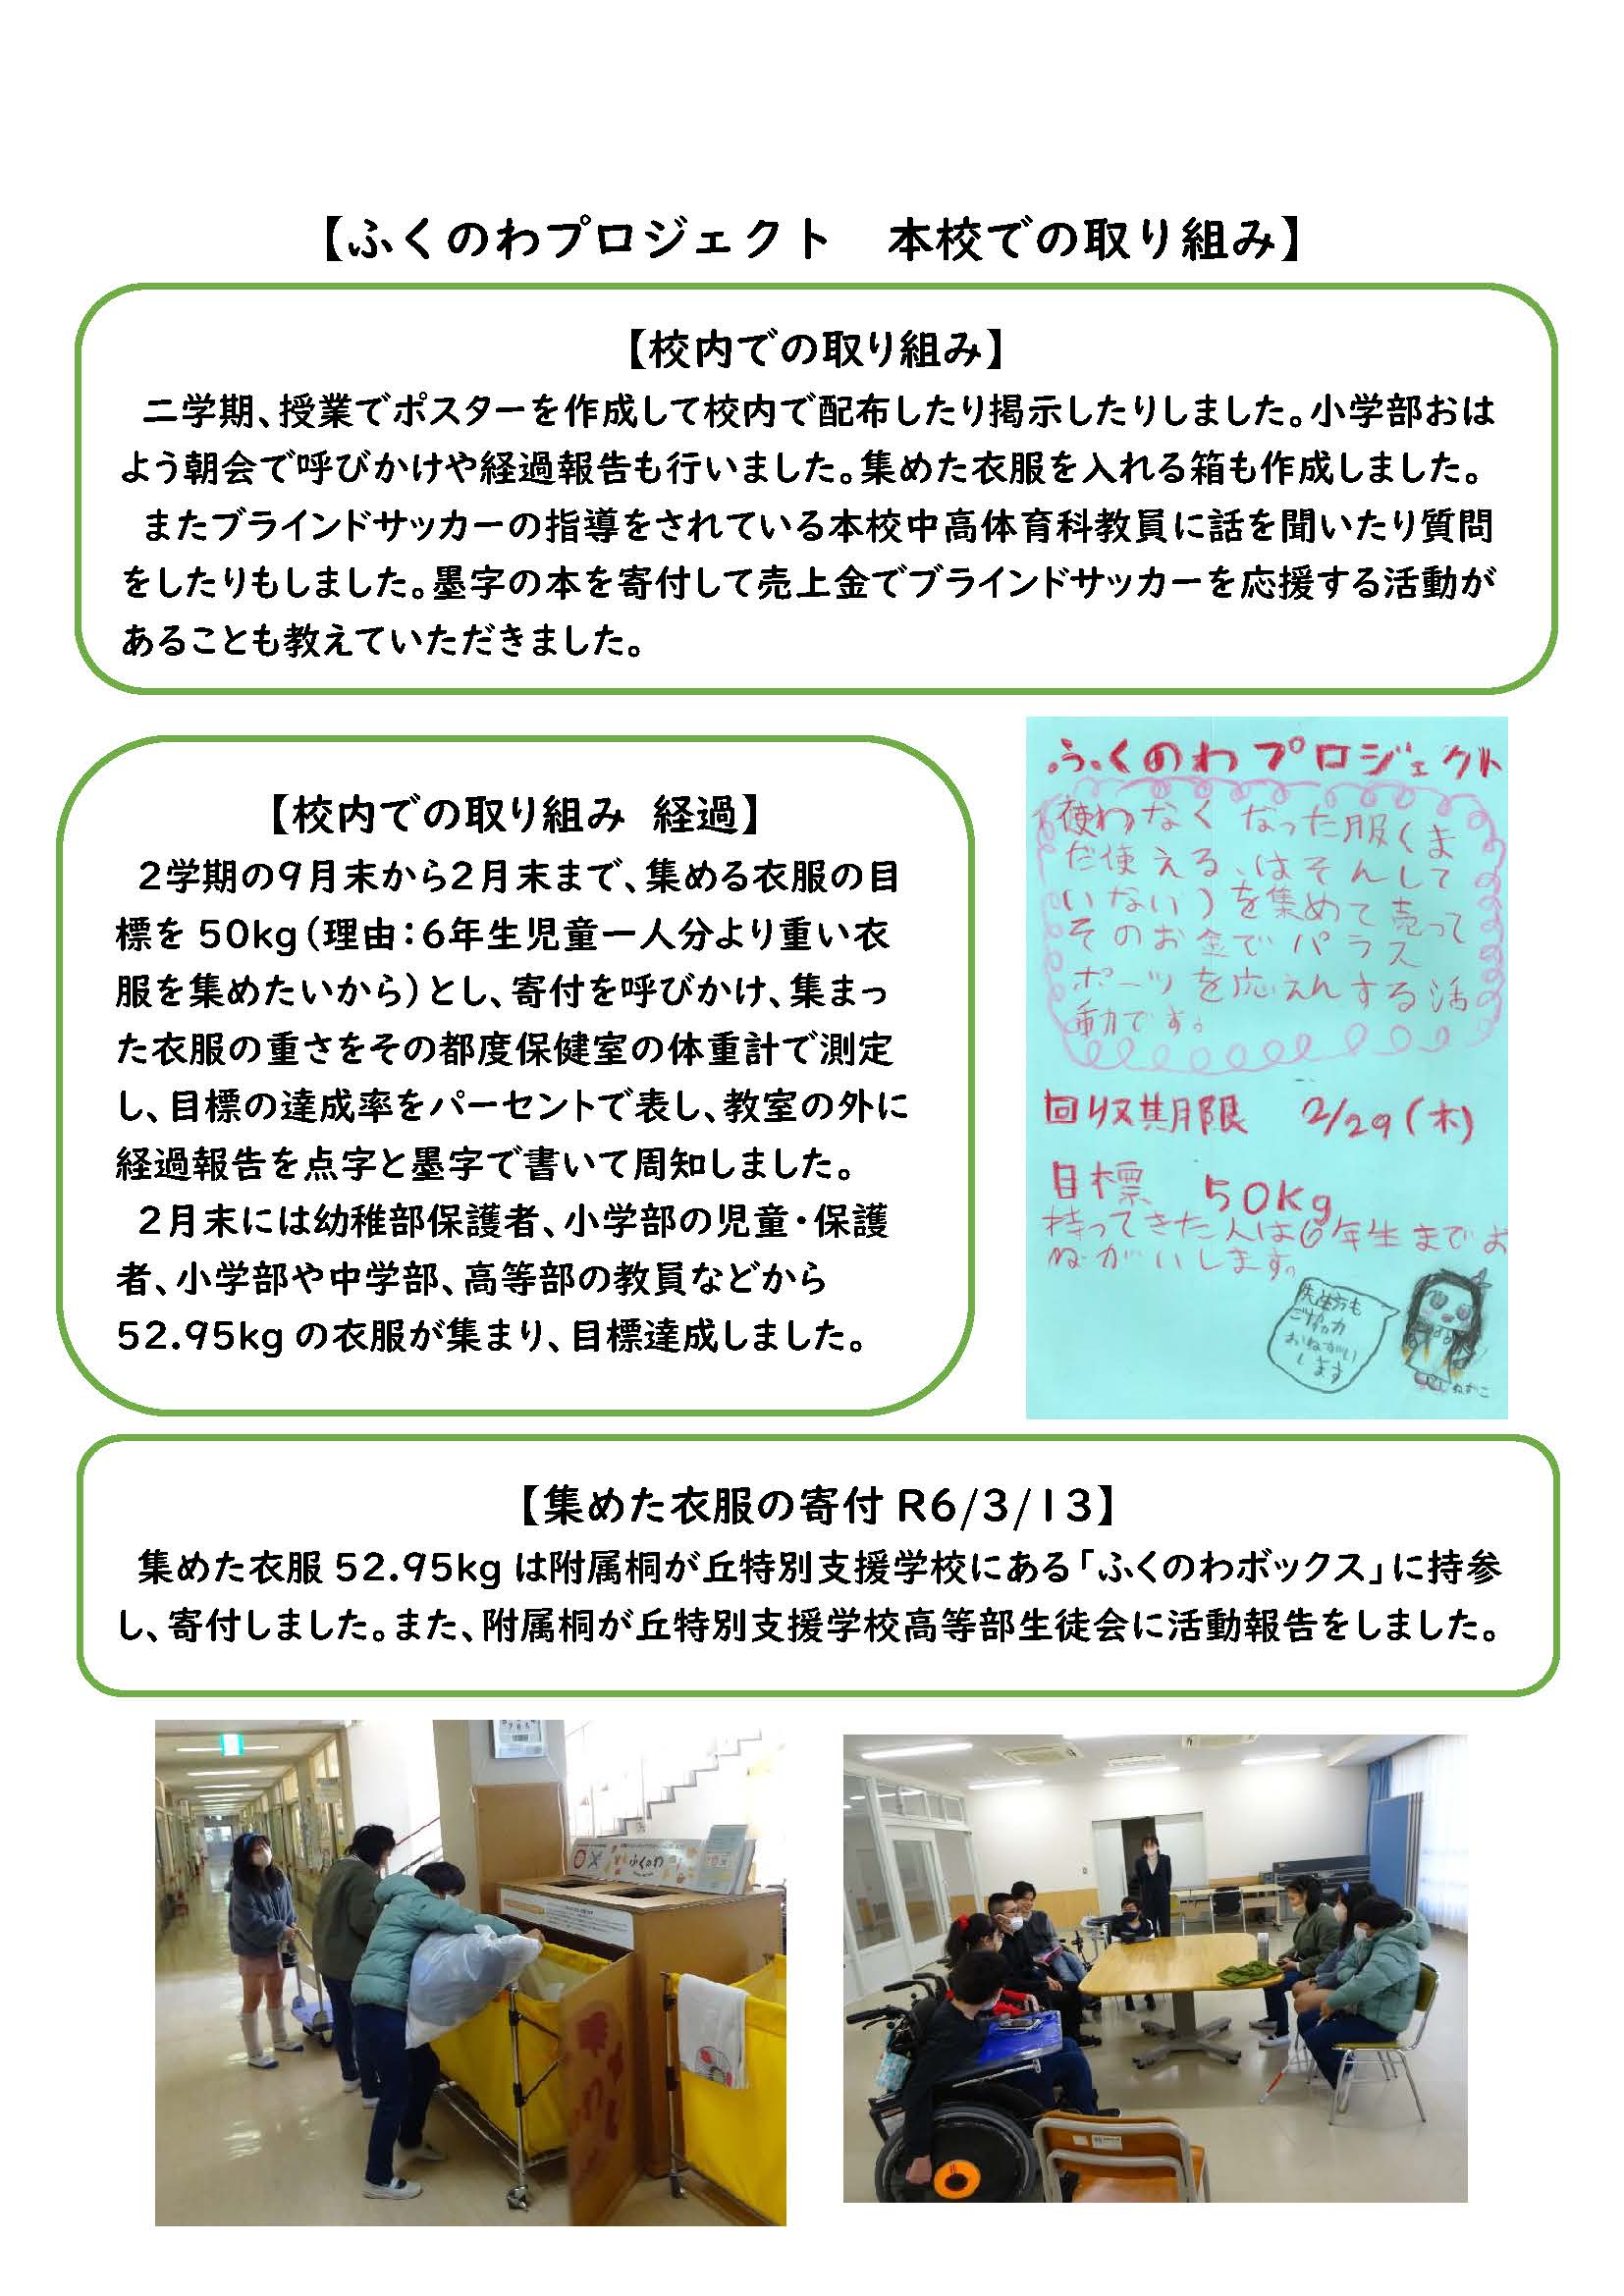 【ふくのわプロジェクト　本校での取り組み】
【校内での取り組み】
二学期、授業でポスターを作成して校内で配布したり掲示したりしました。小学部おは
よう朝会で呼びかけや経過報告も行いました。集めた衣服を入れる箱も作成しました。
またブラインドサッカーの指導をされている本校中高体育科教員に話を聞いたり質問
をしたりもしました。墨字の本を寄付して売上金でブラインドサッカーを応援する活動が
あることも教えていただきました。
【校内での取り組み 経過】
2学期の9月末から2月末まで、集める衣服の目
標を 50kg（理由：6年生児童一人分より重い衣
服を集めたいから）とし、寄付を呼びかけ、集まっ
た衣服の重さをその都度保健室の体重計で測定
し、目標の達成率をパーセントで表し、教室の外に
経過報告を点字と墨字で書いて周知しました。
2月末には幼稚部保護者、小学部の児童・保護
者、小学部や中学部、高等部の教員などから
52.95kg の衣服が集まり、目標達成しました。
ふくのわプロジェクト
使わなくなった服(ま
だ使える、はそんして
いない)を集めて売って
そのお金でパラス
ポーツを応えんする活
動です。
回収期限 2/29(木)
目標 50Kg
持ってきた人は6年生までお
ねがいします。
先生方も
ご協力
おねがい
します
ねずこ
【集めた衣服の寄付 R6/3/13】
集めた衣服 52.95kg は附属桐が丘特別支援学校にある「ふくのわボックス」に持参
し、寄付しました。また、附属桐が丘特別支援学校高等部生徒会に活動報告をしました。
ふくのわ